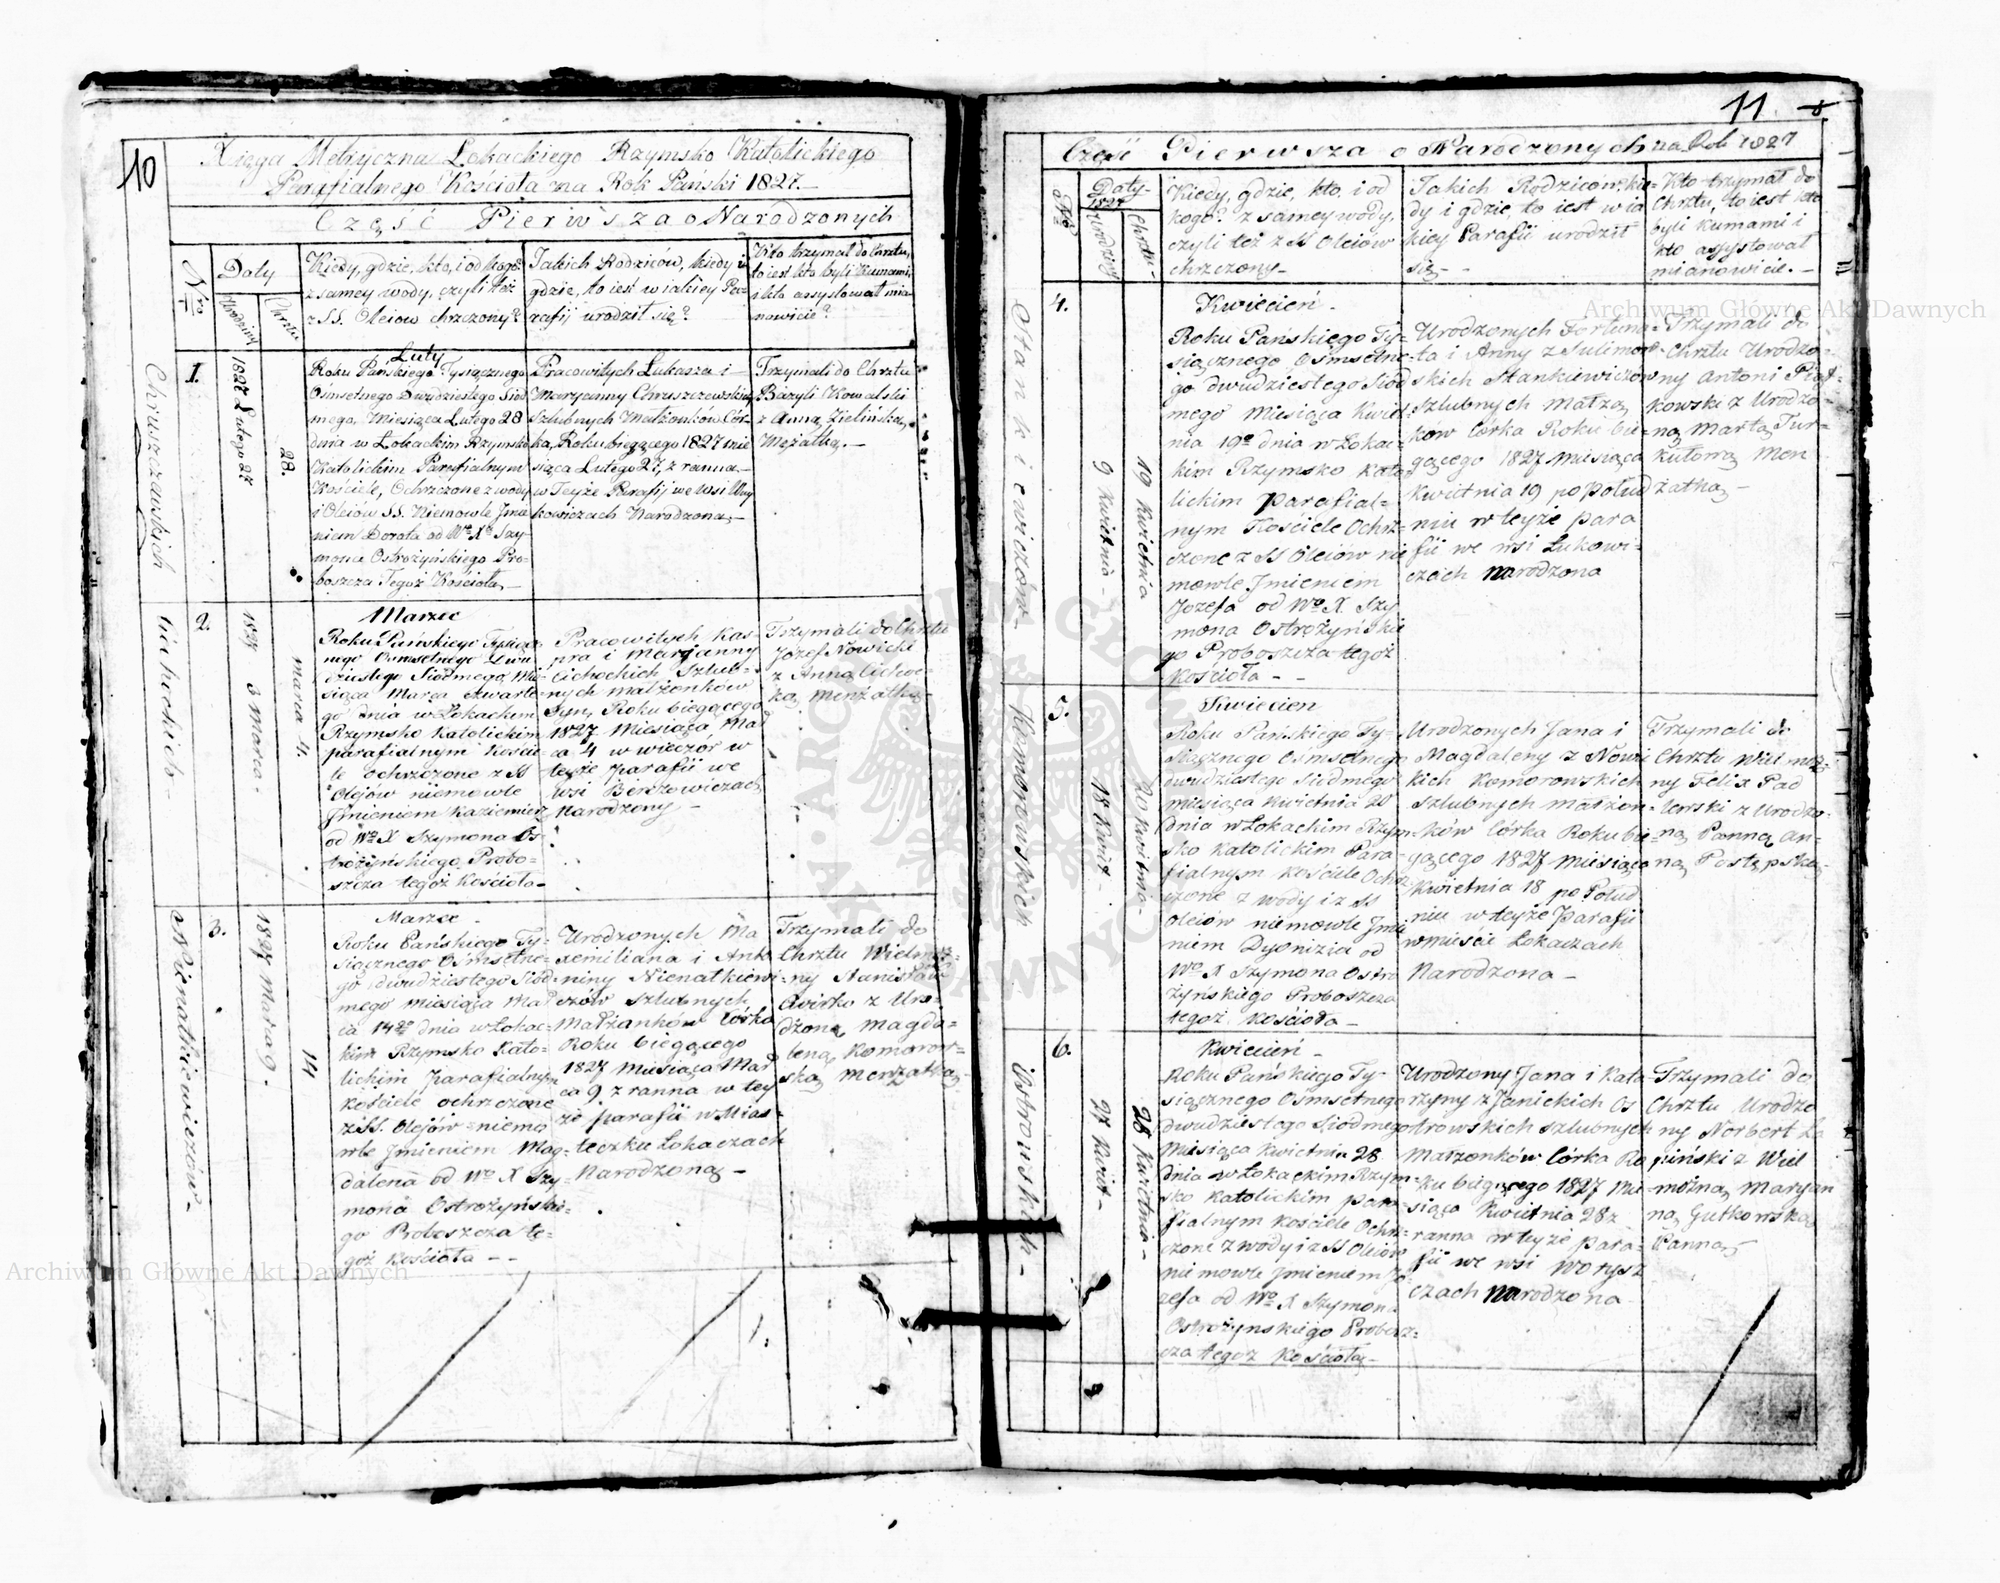 10
Xięga Metryczna Łokackiego Rzymsko Katolickiego
Parafialnego Kościoła na Rok Pański 1827.
Część Pierwsza o Narodzonych
Nro
Daty
Urodziny
Chrztu
Kiedy, gdzie, kto, i od kogo?
z samey wody, czyli też
z SS. Oleiow chrzczony?
Jakich Rodziców, kiedy i
gdzie, to iest w iakiey Pa-
rafij urodził się?
Kto trzymał do Chrztu,
to iest kto byli Kumami,
i kto assystował mia-
nowicie?
Chruszczewskich
1.
1827 Lutego 27
28.
Luty
Roku Pańskiego Tysiącznego
Ośmsetnego Dwudziestego Siód
mego, Miesiąca Lutego 28
dnia w Łokackim Rzymsko
Katolickim Parafialnym
Kościele, Ochrzczone z wody
i Oleiów SS. Niemowle Jmie
niem Dorota od Wo X Szy-
mona Ostrożyńskiego Pro-
boszcza Tegoż Kościoła,
Pracowitych Łukasza i
Maryanny Chruszczewskich
Szlubnych Małżonków Cór-
ka, Roku biegącego 1827 mie
siąca Lutego 27, z ranna
w Teyże Parafij we Wsi
kowiczach Narodzona,
Trzymali do Chrztu
Bazyli Kowalski
z Anną Zielińską,
Mężatką.
Cichockich
2.
1827 3 Marca
marca 4.
Marzec
Roku Pańskiego Tysiącz
nego Ośmsetnego Dwu
dziestego Siódmego Mie
siąca Marca czwarte
go dnia w Łokackim
Rzymsko Katolickim
parafialnym Koście
le ochrzczone z SS
Olejów niemowle
Jmieniem Kazimierz
od Wo X Szymona Os-
trożyńskiego Probo-
szcza tegoż Kościoła
Pracowitych Kas-
pra i Maryanny
Cichockich Szlub-
nych małżonków
Syn, Roku biegącego
1827 Miesiąca Mar
ca 4 w wieczór w
teyże parafii we
wsi Berezowiczach
Narodzony
Trzymali do Chrztu
Józef Nowicki
z Anną Cichoc
ką, Menżatką
Nienatkiewiczów
3.
1827 Marca 9.
14
Marzec
Roku Pańskiego Ty-
siącznego Ośmsetne-
go dwudziestego Siód
mego miesiąca Mar
ca 14go dnia w Łokac-
kim Rzymsko Kato-
lickim parafialnym
kościele ochrzczone
z SS. Olejów niemo
wle Jmieniem Mag-
dalena od Wo X Szy-
mona Ostrożyńskie-
go Proboszcza te-
goż Kościoła
Urodzonych Ma
xemiliana i Anto
niny Nienatkiewi
czów szlubnych
Małżonków Córka
Roku biegącego
1827 Miesiąca Mar
ca 9 z ranna w tey
że parafii w Mias-
teczku Łokaczach
Narodzona
Trzymali do
Chrztu Wielmoż-
ny Stanisław
z Uro-
dzoną Magda-
leną Komorow-
ską Menżatką
11
Część Pierwsza o Narodzonych na Rok 1827
Nro
Daty
1827
Urodziny
Chrztu
Kiedy, gdzie, kto, i od
kogo? z samey wody,
czyli też z SS Oleiów
chrzczony
Jakich Rodziców, kie-
dy i gdzie, to iest w ia
kiey Parafii urodził
się
Kto trzymał do
Chrztu, to iest kto
byli Kumami i
kto assystował
mianowicie.
Stankiewiczów
4.
9 Kwietnia
19 Kwietnia
Kwiecień
Roku Pańskiego Ty-
siącznego Ośmsetne-
go dwudziestego Siód
mego Miesiąca Kwiet
nia 19go dnia w Łokac
kim Rzymsko Kato
lickim Parafial-
nym Kościele Ochrz-
czone z SS Oleiów nie
mowle Jmieniem
Jozefa od Wo X. Szy
mona Ostrożyńskie
go Proboszcza tegoż
Kościoła
Urodzonych Fortuna-
ta i Anny z Sulimow-
skich Stankiewiczów
Szlubnych Małżą
ków Córka Roku bie
gącego 1827 Miesiąca
Kwietnia 19 po połud
niu w teyże para
fii we wsi Łukowi-
czach Narodzona
Trzymali do
Chrztu Urodzo-
ny Antoni Piot-
kowski z Urodzo-
ną Martą Tur-
kutową Men
żatką
Komorowskich
5.
18 Kwiet
20 Kwietnia
Kwiecien
Roku Pańskiego Ty-
siącznego Ośmsetnego
dwudziestego Siódmego
miesiąca Kwietnia 20
dnia w Łokackim Rzym-
sko Katolickim Para-
fialnym Kościele Ochrz
czone z wody i z SS
Oleiów niemowle Jmie
niem Dyonizia od
Wo X Szymona Ostro
żyńskiego Proboszcza
tegoż Kościoła
Urodzonych Jana i
Magdaleny z Nowic
kich Komorowskich
Szlubnych Małżon-
ków Córka Roku bie-
gącego 1827 Miesiąca
Kwietnia 18 po Połud
niu w teyże Parafii
w mieście Łokaczach
Narodzona
Trzymali do
Chrztu Wielmoż-
ny Felix Pad
lewski z Urodzo-
ną Panną An-
ną Postępską
Ostrowskich
6.
27 Kwiet
28 Kwietnia
Kwiecień
Roku Pańskiego Ty-
siącznego Ośmsetnego
dwudziestego Siódmego
Miesiąca Kwietnia 28
dnia w Łokackim Rzym-
sko Katolickim para-
fialnym Kościele Ochrz-
czone z wody i z SS Oleiów
niemowle Jmieniem Jó-
zefa od Wo X Szymona
Ostrożynskiego Probosz-
cza tegoż Kościoła
Urodzony Jana i Kata-
rzyny z Janickich Os
trowskich szlubnych
Małżonków Córka Ro
ku biegącego 1827 Mie
siąca Kwietnia 28 z
ranna w teyże Para-
fii we wsi Worysz
czach Narodzona
Trzymali do
Chrztu Urodzo
ny Norbert Ła
piński z Wiel
możną Maryan
ną Gutkowską
Panną
Archiwum Główne Akt Dawnych
Archiwum Główne Akt Dawnych